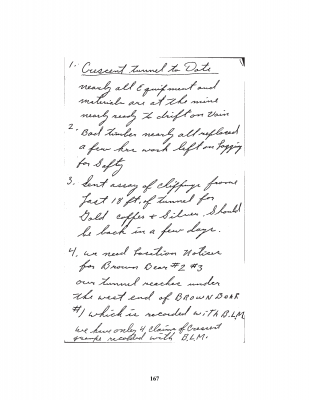 1. Crescent tunnel to Date
nearly all Equipment and
materials are at the mine
nearly ready to drift on Vain
2. Bad timber nearly all replaced
a few hrs work left on Lagging
for Safty
3. Sent assay of clippings from
last 18 ft. of tunnel for
Gold copper & Silver. Should
be back in a few days.
4. we need Location Notices
for Brown Bear #2 #3
our tunnel reaches under
the west end of BROWN BEAR
#1 which is recorded with B.L.M
we have only 4 Claims of Crescent
groupe recorded with B.L.M.
167